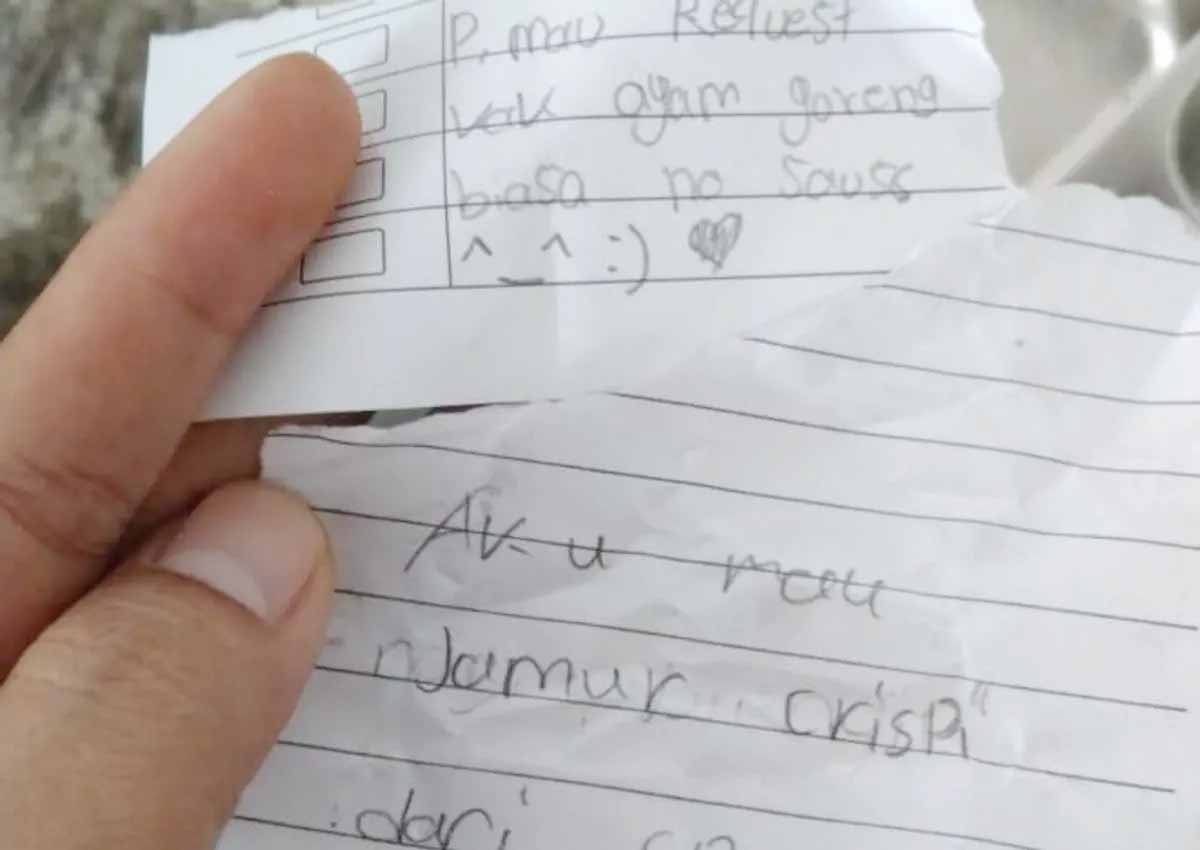 P. mau Request
kak ayam goreng
biasa no Sauss
^_^ :) ♥
AKu mau
nJamur crispi
dari